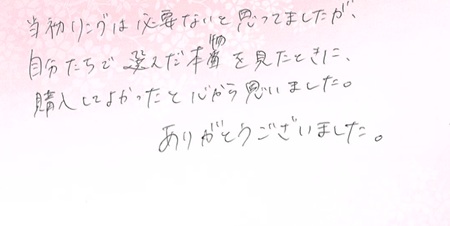 当初リングは必要ないと思ってましたが、
自分たちで選んだ本物を見たときに、
購入してよかったと心から思いました。
ありがとうございました。